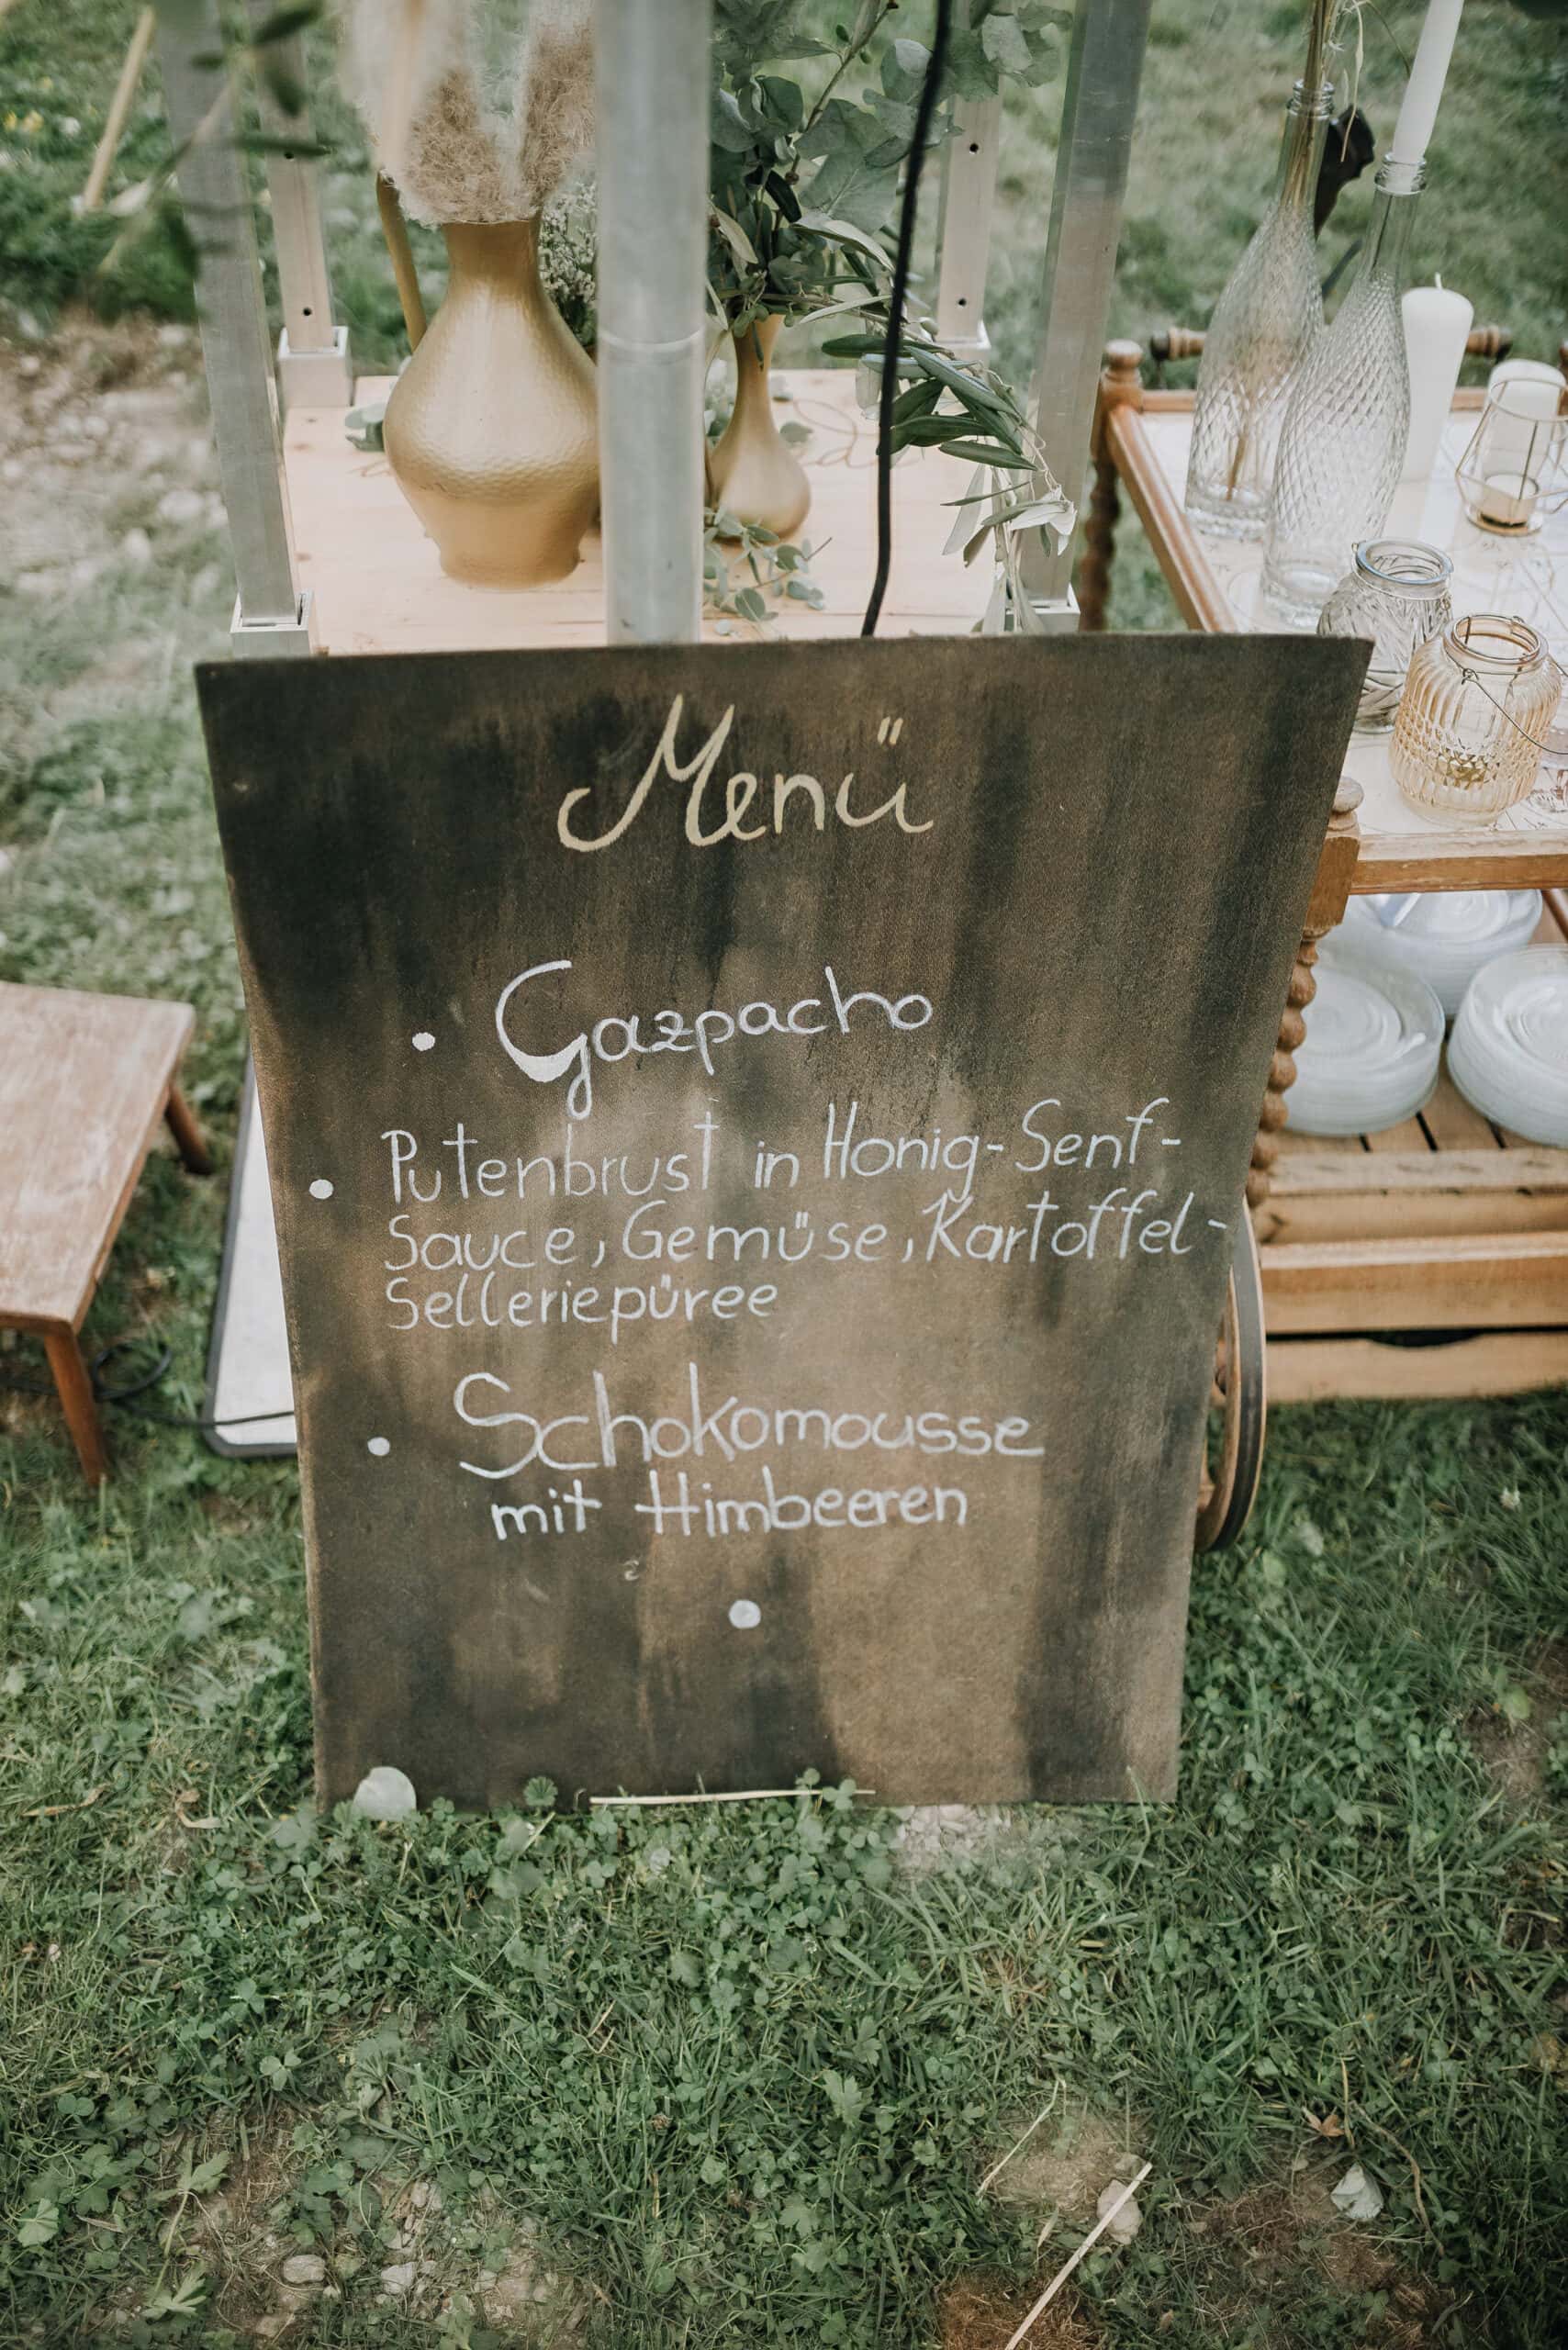 Menü
• Gazpacho
• Putenbrust in Honig-Senf-
Sauce, Gemüse, Kartoffel-
Selleriepüree
• Schokomousse
mit Himbeeren
•